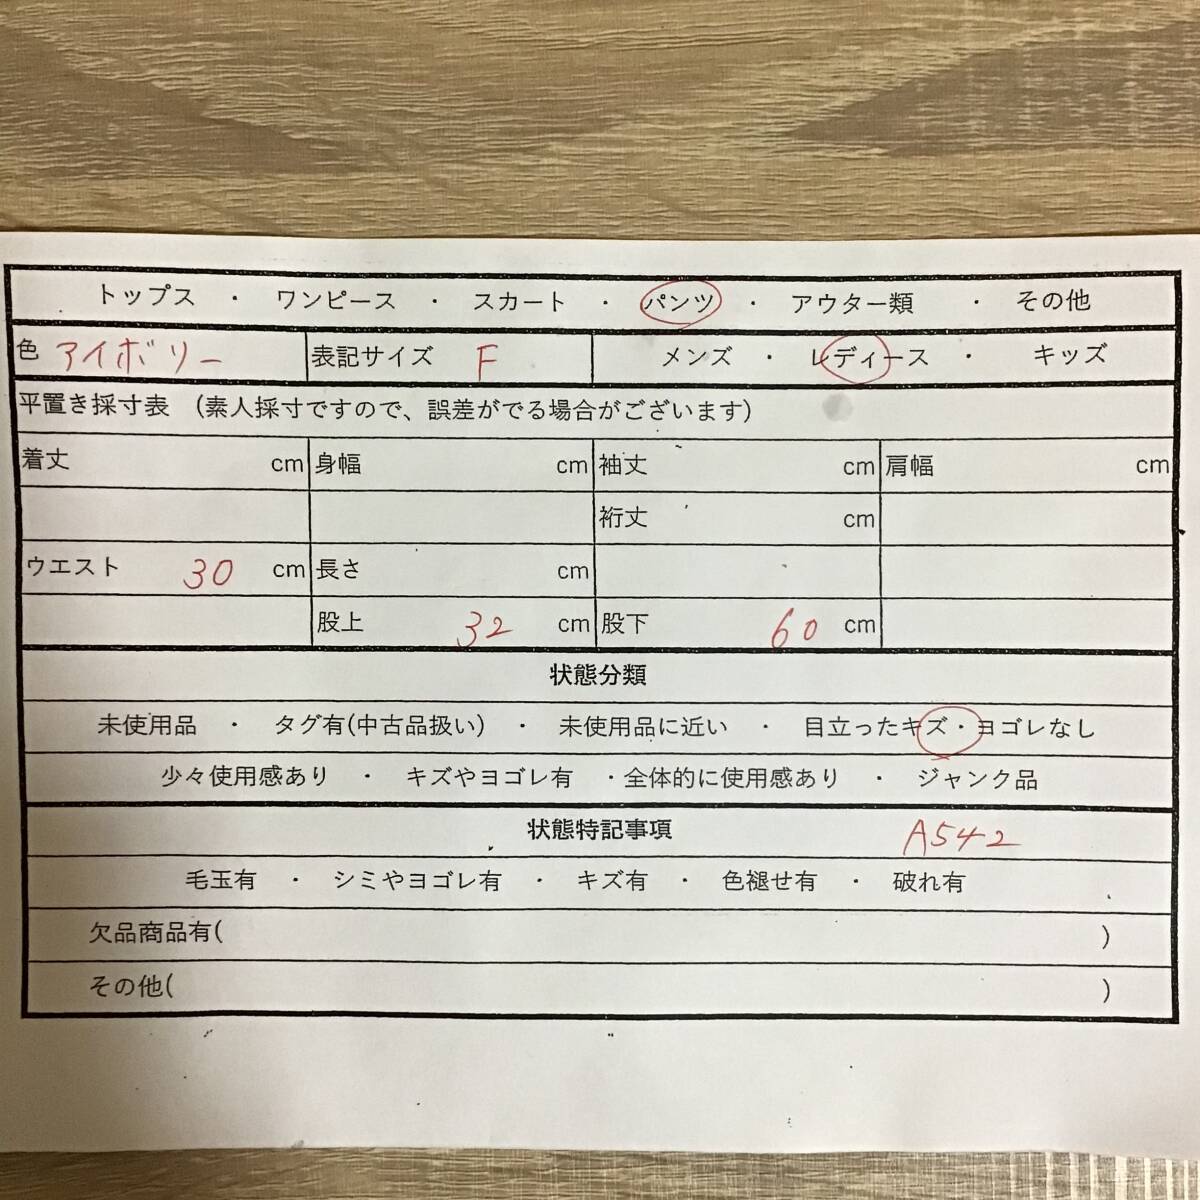 トップス ・ ワンピース ・ スカート ・ パンツ ・ アウター類 ・ その他
色 アイボリー 表記サイズ F メンズ ・ レディース ・ キッズ
平置き採寸表 (素人採寸ですので、誤差がでる場合がございます)
着丈 cm 身幅 cm 袖丈 cm 肩幅 cm
裄丈 cm
ウエスト 30 cm 長さ cm
股上 32 cm 股下 60 cm
状態分類
未使用品 ・ タグ有(中古品扱い) ・ 未使用品に近い ・ 目立ったキズ・ヨゴレなし
少々使用感あり ・ キズやヨゴレ有 ・全体的に使用感あり ・ ジャンク品
状態特記事項 A542
毛玉有 ・ シミやヨゴレ有 ・ キズ有 ・ 色褪せ有 ・ 破れ有
欠品商品有( )
その他( )